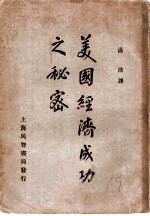 湯浩譯
美國經濟成功
之秘密
上海民智書局發行